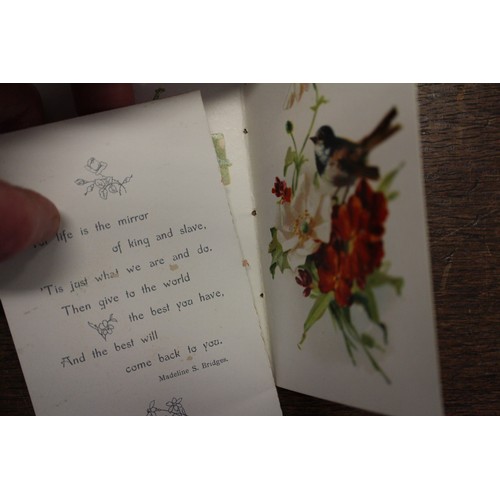 life is the mirror
of king and slave,
'Tis just what we are and do.
Then give to the world
the best you have,
And the best will
come back to you.
Madeline S. Bridges.